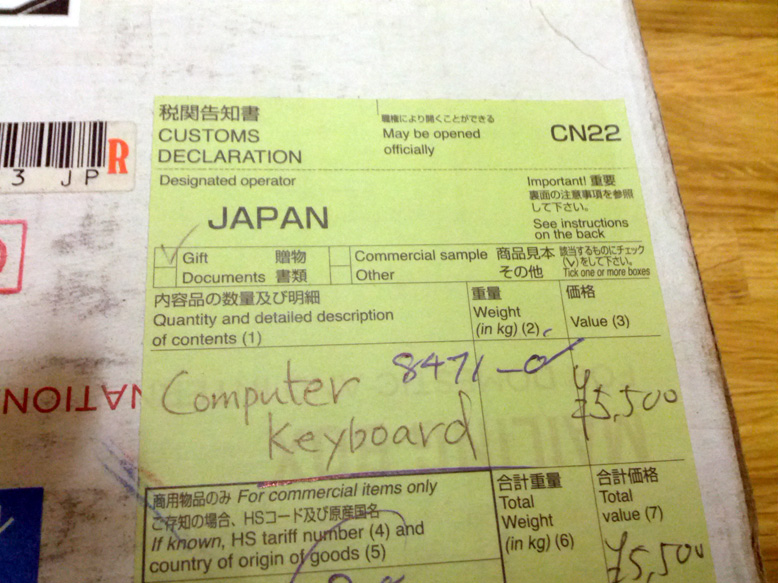 税関告知書
CUSTOMS
DECLARATION
職権により開くことができる
May be opened
officially
CN22
Designated operator
JAPAN
Important! 重要
裏面の注意事項を参照
して下さい。
See instructions
on the back
Gift 贈物
Commercial sample 商品見本
Documents 書類
Other その他
該当するものにチェック
(√)をして下さい。
Tick one or more boxes
内容品の数量及び明細
Quantity and detailed description
of contents (1)
重量
Weight
(in kg) (2)
価格
Value (3)
8471
Computer
Keyboard
¥5,500
商用物品のみ For commercial items only
ご存知の場合、HSコード及び原産国名
If known, HS tariff number (4) and
country of origin of goods (5)
合計重量
Total
Weight
(in kg) (6)
合計価格
Total
value (7)
¥5,500
3 JP
R